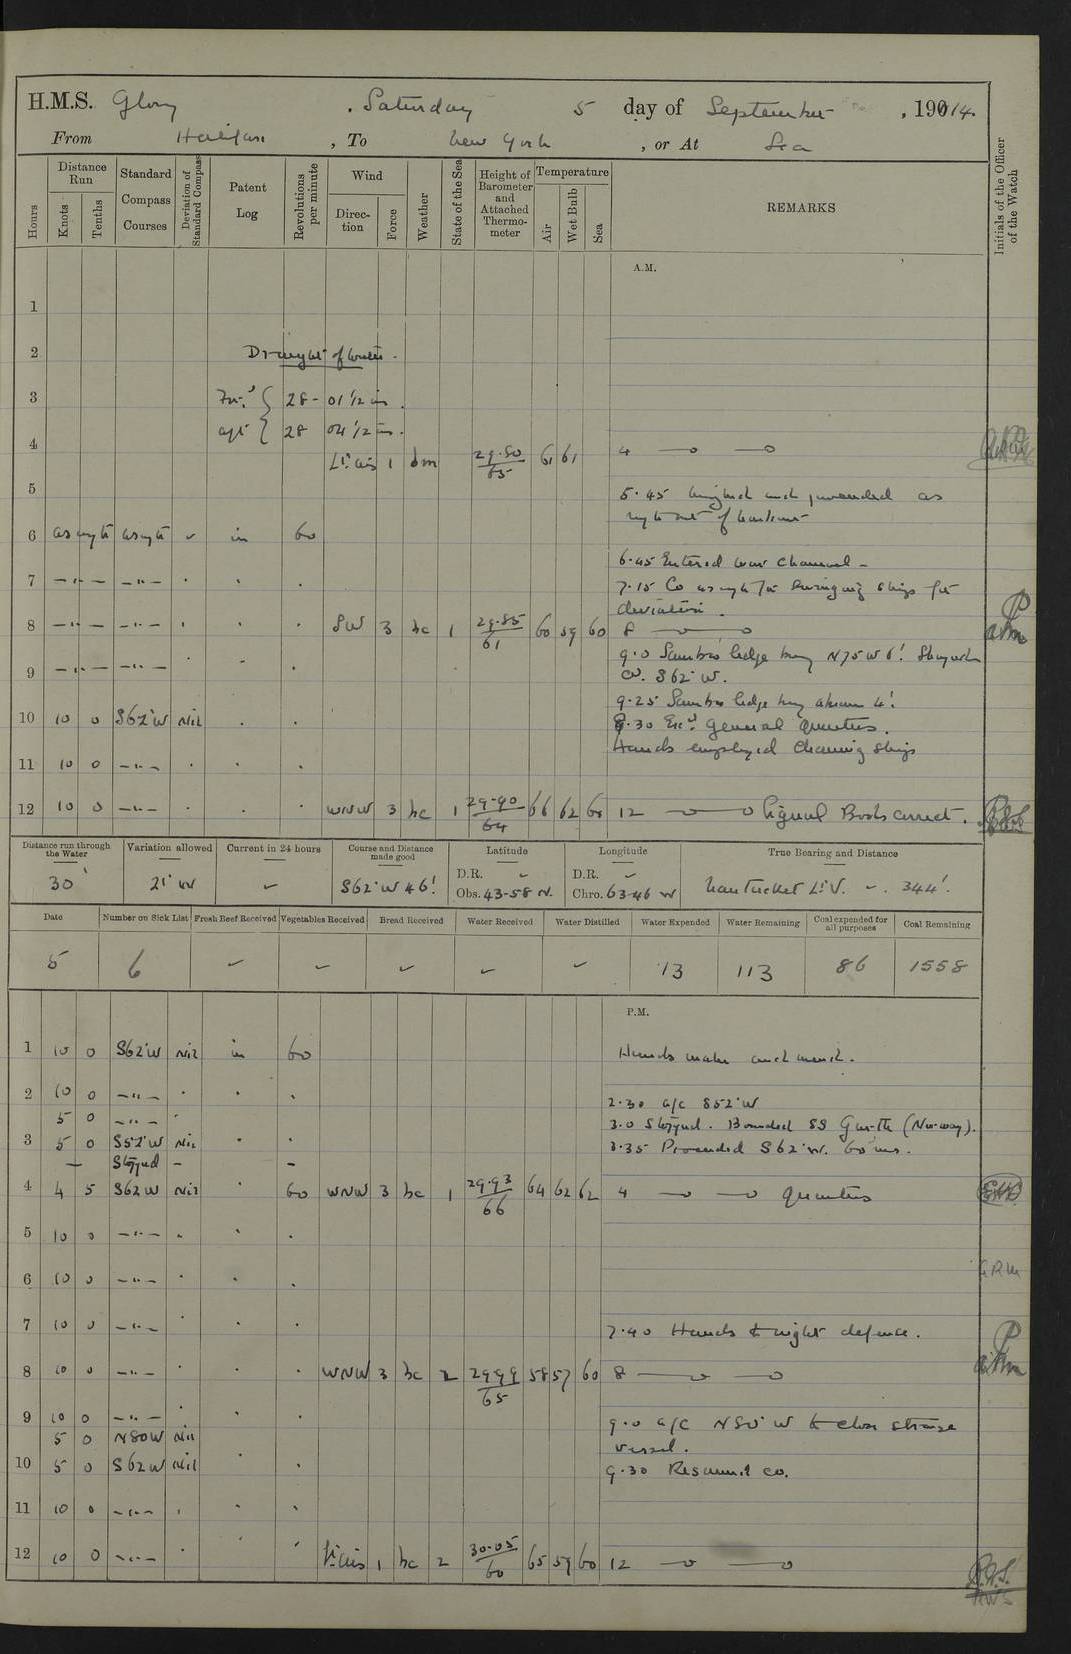 H.M.S. Glory , Saturday 5 day of September , 1914.
From Halifax , To New York , or At Sea
Hours
Distance Run
Knots
Tenths
Standard Compass Courses
Deviation of Standard Compass
Patent Log
Revolutions per minute
Wind
Direction
Force
Weather
State of the Sea
Height of Barometer and Attached Thermometer
Temperature
Air
Wet Bulb
Sea
REMARKS
Initials of the Officer of the Watch
A.M.
1
2 Draught of Water.
3 For'd 28 - 01 1/2 in.
aft 28 04 1/2 in.
4 Lt. airs 1 bm 29.80 65 61 61 4 —o —o
5 5.45 Weighed and proceeded as
req to out of harbour
6 as reqte as reqte ✓ in 60
6.45 Entered War Channel -
7 — " — — " — 7.15 Co as reqte for swinging ships for
deviation.
8 — " — — " — SW 3 bc 1 29.85 61 60 59 60 8 —o —o
9 — " — — " — 9.0 Sambro ledge buoy N75W 6'. Shaped
Co. S62°W.
9.25 Sambro ledge buoy abeam 4'.
10 10 0 S62°W Nil 9.30 Exd. General Quarters.
Hands employed cleaning ships
11 10 0 — " —
12 10 0 — " — WNW 3 bc 1 29.90 64 66 62 60 12 —o —o Signal Books correct.
Distance run through the Water 30'
Variation allowed 21° W
Current in 24 hours ✓
Course and Distance made good S62°W 46'
Latitude D.R. ✓ Obs. 43-58 N.
Longitude D.R. ✓ Chro. 63-46 W
True Bearing and Distance Nantucket Lt V. ✓. 344'.
Date Number on Sick List Fresh Beef Received Vegetables Received Bread Received Water Received Water Distilled Water Expended Water Remaining Coal expended for all purposes Coal Remaining
5 6 ✓ ✓ ✓ ✓ ✓ 13 113 86 1558
P.M.
1 10 0 S62°W Nil in 60 Hands make and mend.
2 10 0 — " — 2.30 a/c S52°W
5 0 — " — 3.0 Stopped. Boarded SS (Norway).
3 5 0 S52°W Nil 3.35 Proceeded S62°W. 60 revs.
— Stopped — —
4 4 5 S62W Nil 60 WNW 3 bc 1 29.93 66 64 62 62 4 —o —o Quarters
5 10 0 — " —
6 10 0 — " — GRM
7 10 0 — " — 7.40 Hands to night defence.
8 10 0 — " — WNW 3 bc 2 29.99 65 58 57 60 8 —o —o
9 10 0 — " — 9.0 a/c N80°W to close strange
5 0 N80W Nil vessel.
10 5 0 S62W Nil 9.30 Resumed co.
11 10 0 — " —
12 10 0 — " — Lt airs 1 bc 2 30.05 60 65 59 60 12 —o —o